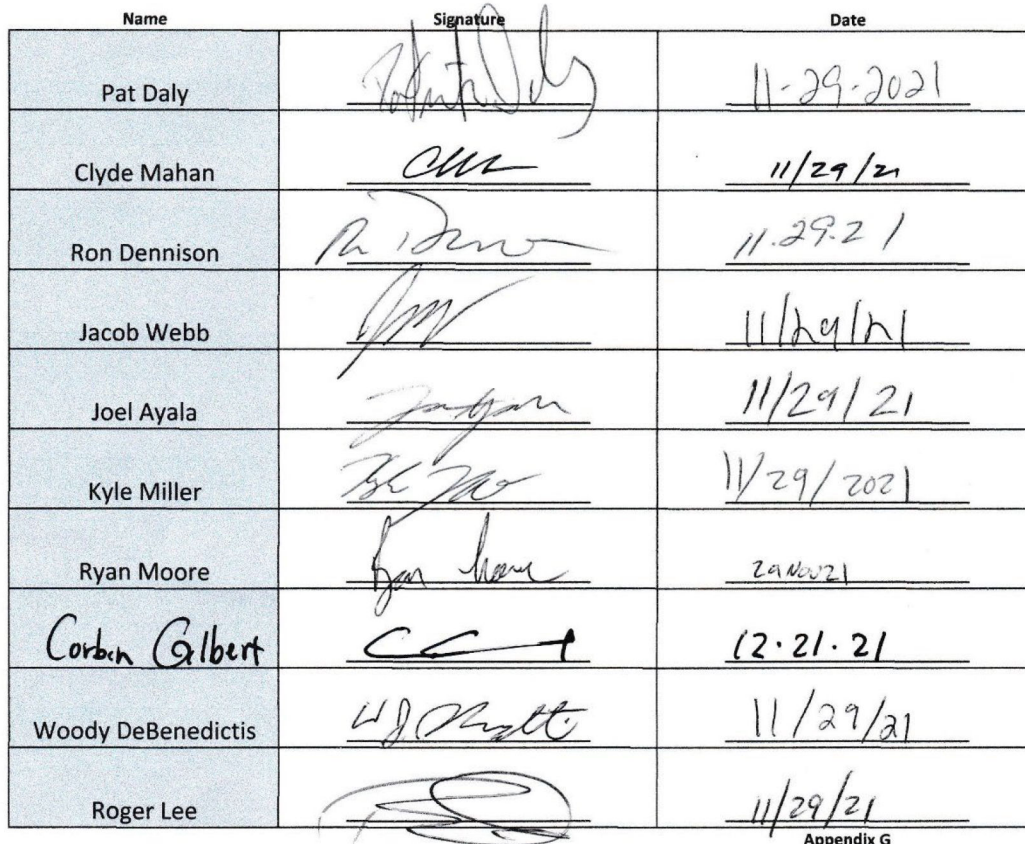 Name Signature Date
Pat Daly 11-29-2021
Clyde Mahan 11/29/21
Ron Dennison 11.29.21
Jacob Webb 11/29/21
Joel Ayala 11/29/21
Kyle Miller 11/29/2021
Ryan Moore Ryan Moore 29NOV21
Corbin Gilbert 12.21.21
Woody DeBenedictis 11/29/21
Roger Lee 11/29/21
Appendix G